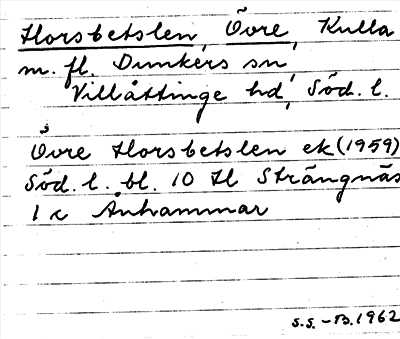 Horsbetslen, Övre, Kulla
m. fl. Dunkers sn,
Villåttinge hd, Söd. l.
Övre Horsbetslen ek (1959)
Söd. l. bl. 10 H Strängnäs
1 c Ånhammar
S.S. - B. 1962